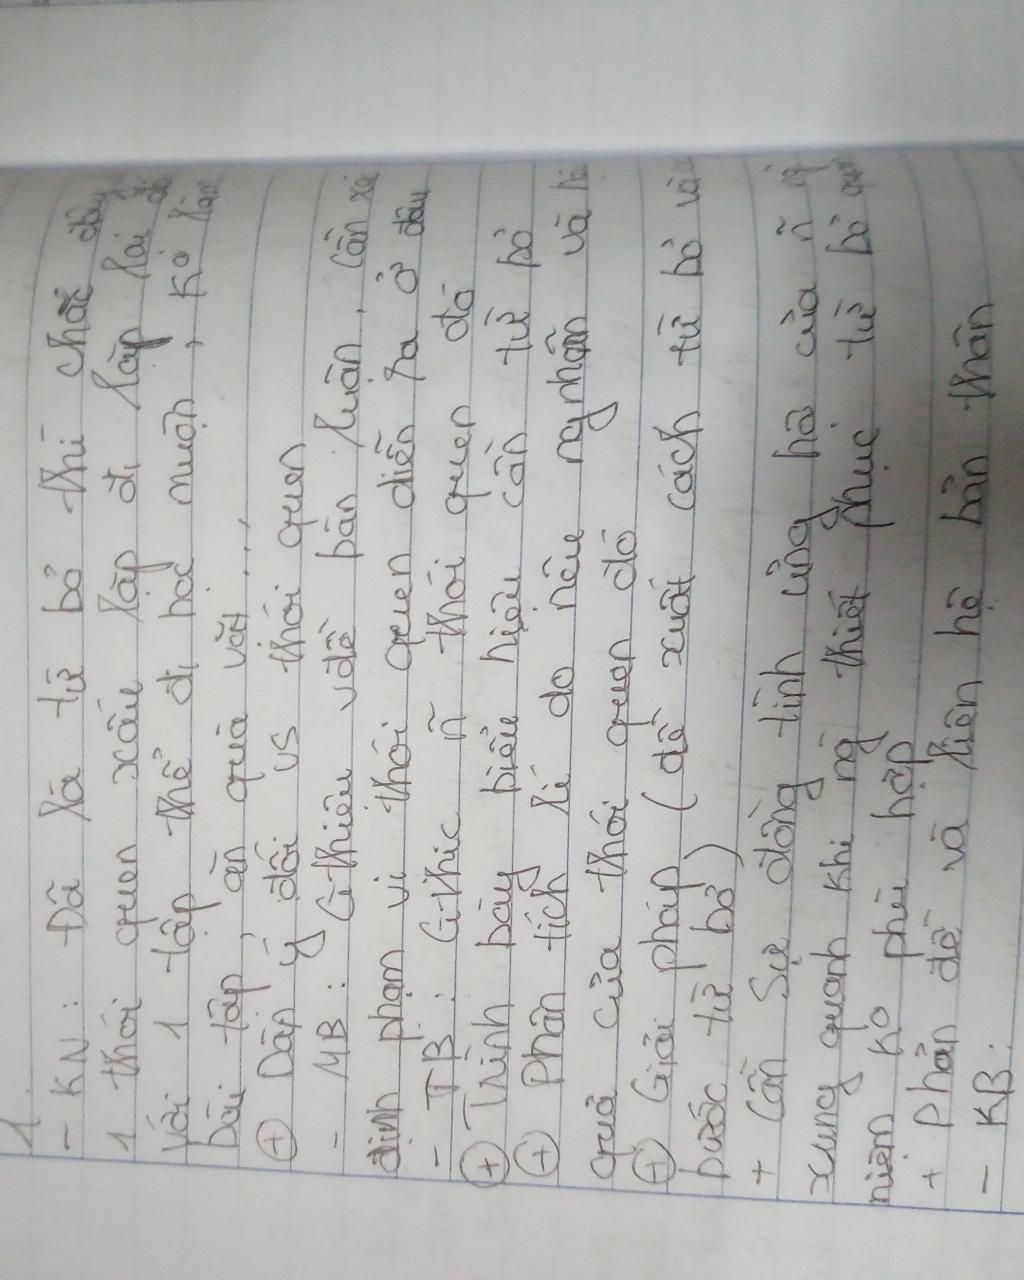 1.
- KN: Đã là từ bỏ thì chắc đây
1 thói quen xấu lặp đi lặp lại đối
với 1 tập thể đi học muộn, ko làm
bài tập, ăn quà vặt...
+ Dàn ý đối vs thói quen
- MB: Gthiệu vđề bàn luận, cần xá
định phạm vi thói quen diễn ra ở đâu
- TB: Gthic ~n thói quen đó
+ Trình bày biểu hiện cần từ bỏ
+ Phân tích lí do nêu ng nhân và hậ
quả của thói quen đó
+ Giải pháp (đề xuất cách từ bỏ và
bước từ bỏ)
+ Cần sự đồng tình ủng hộ của ~n ng
xung quanh khi ng thiết phục từ bỏ qua
niệm ko phù hợp
+ Phản đề và liên hệ bản thân
- KB: